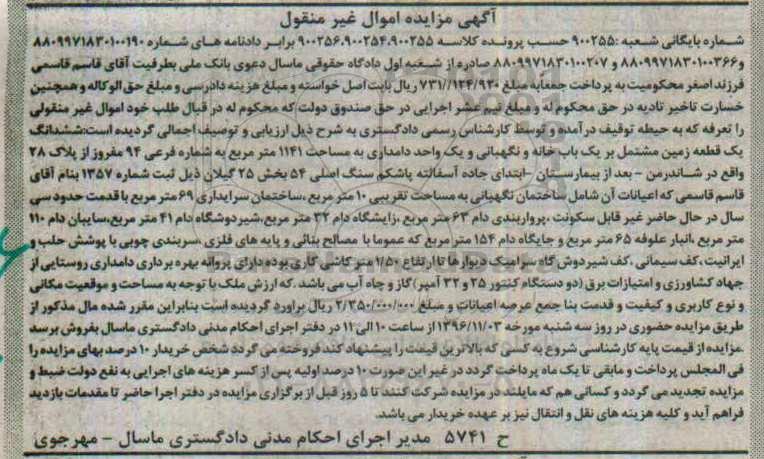 آگهی مزایده اموال غیر منقول
شماره بایگانی شعبه :۹۰۰۲۵۵ حسب پرونده کلاسه ۹۰۰۲۵۶،۹۰۰۲۵۴،۹۰۰۲۵۵ برابر دادنامه های شماره ۸۸۰۹۹۷۱۸۳۰۱۰۰۱۹۰
و۸۸۰۹۹۷۱۸۳۰۱۰۰۳۶۶ و ۸۸۰۹۹۷۱۸۳۰۱۰۰۲۰۷ صادره از شعبه اول دادگاه حقوقی ماسال دعوی بانک ملی بطرفیت آقای قاسم قاسمی
فرزند اصغر محکومیت به پرداخت جمعابه مبلغ ۷۳۱/۱۲۴/۹۳۰ ریال بابت اصل خواسته و مبلغ هزینه دادرسی و مبلغ حق الوکاله و همچنین
خسارت تاخیر تادیه در حق محکوم له و مبلغ نیم عشر اجرایی در حق صندوق دولت که محکوم له در قبال طلب خود اموال غیر منقولی
را تعرفه که به حیطه توقیف در آمده و توسط کارشناس رسمی دادگستری به شرح ذیل ارزیابی و توصیف اجمالی گردیده است:ششدانگ
یک قطعه زمین مشتمل بر یک باب خانه و نگهبانی و یک واحد دامداری به مساحت ۱۱۴۱ متر مربع به شماره فرعی ۹۴ مفروز از پلاک ۲۸
واقع در شاندرمن - بعد از بیمارستان -ابتدای جاده آسفالته پاشکم سنگ اصلی ۵۴ بخش ۲۵ گیلان ذیل ثبت شماره ۱۳۵۷ بنام آقای
قاسم قاسمی که اعیانات آن شامل ساختمان نگهبانی به مساحت تقریبی ۱۰ متر مربع ،ساختمان سرایداری ۶۹ متر مربع با قدمت حدود سی
سال در حال حاضر غیر قابل سکونت ،پرواربندی دام ۶۳ متر مربع ،زایشگاه دام ۳۲ متر مربع،شیردوشگاه دام ۴۱ متر مربع،سایبان دام ۱۱۰
متر مربع ،انبار علوفه ۶۵ متر مربع و جایگاه دام ۱۵۴ متر مربع که عموما با مصالح بنائی و پایه های فلزی ،سربندی چوبی با پوشش حلب و
ایرانیت ،کف سیمانی ،کف شیردوش گاه سرامیک دیوارها تا ارتفاع ۱/۵۰ متر کاشی کاری بوده دارای پروانه بهره برداری دامداری روستایی از
جهاد کشاورزی و امتیازات برق (دو دستگاه کنتور ۲۵ و ۳۲ آمپر) گاز و چاه آب می باشد .که ارزش ملک با توجه به مساحت و موقعیت مکانی
و نوع کاربری و کیفیت و قدمت بنا جمع عرصه اعیانات و مبلغ ۲/۳۵۰/۰۰۰/۰۰۰ ریال براورد گردیده است بنابراین مقرر شده مال مذکور از
طریق مزایده حضوری در روز سه شنبه مورخه ۱۳۹۶/۱۱/۰۳ از ساعت ۱۰ الی ۱۱ در دفتر اجرای احکام مدنی دادگستری ماسال بفروش برسد
.مزایده از قیمت پایه کارشناسی شروع به کسی که بالاترین قیمت را پیشنهاد کند فروخته می گردد شخص خریدار ۱۰ درصد بهای مزایده را
فی المجلس پرداخت و مابقی تا یک ماه پرداخت گردد در غیر این صورت ۱۰ درصد اولیه پس از کسر هزینه های اجرایی به نفع دولت ضبط و
مزایده تجدید می گردد و کسانی هم که مایلند در مزایده شرکت کنند تا ۵ روز قبل از برگزاری مزایده در دفتر اجرا حاضر تا مقدمات بازدید
فراهم آید و کلیه هزینه های نقل و انتقال نیز بر عهده خریدار می باشد.
ح ۵۷۴۱ مدیر اجرای احکام مدنی دادگستری ماسال - مهرجوی